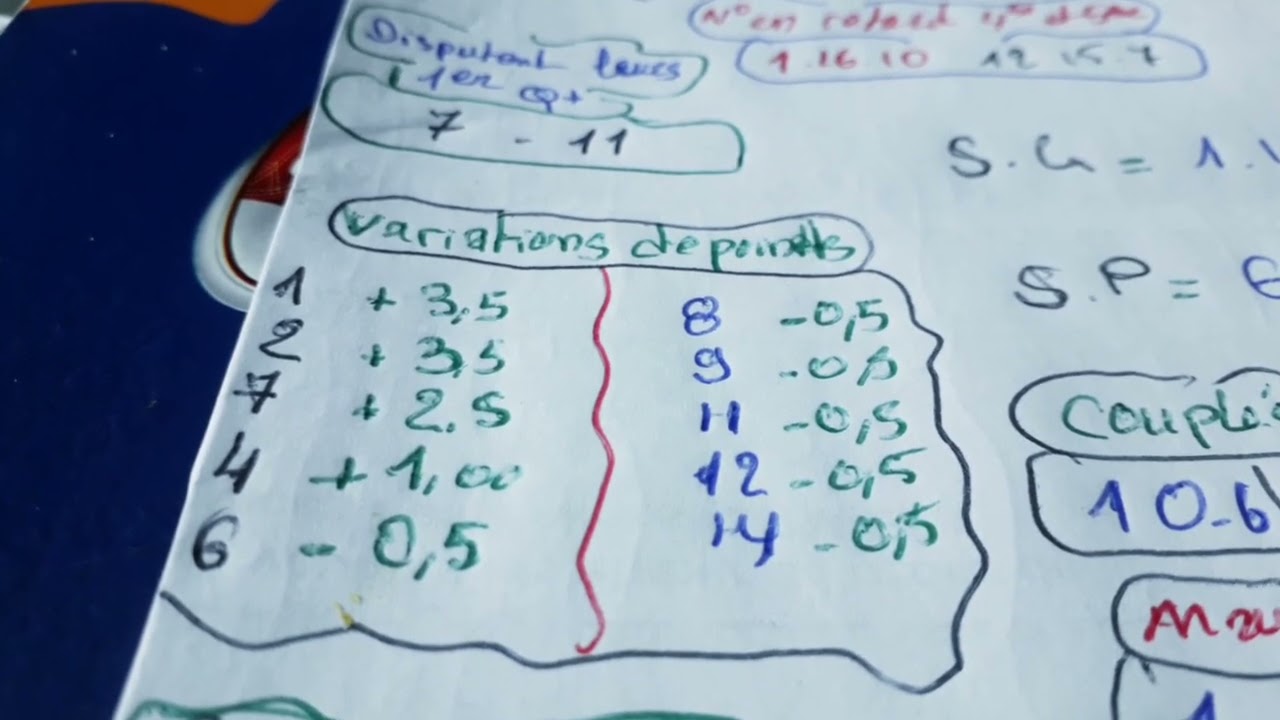 Disputant leurs
1er Q+
7 - 11
N° en retard
1.16 10 12 15.7
S.G = 1.
S.P =
Variations de points
1 + 3,5
2 + 3,5
7 + 2.5
4 + 1,00
6 - 0,5
8 - 0,5
9 - 0,5
11 - 0,5
12 - 0,5
14 - 0,5
Couplé
10-6